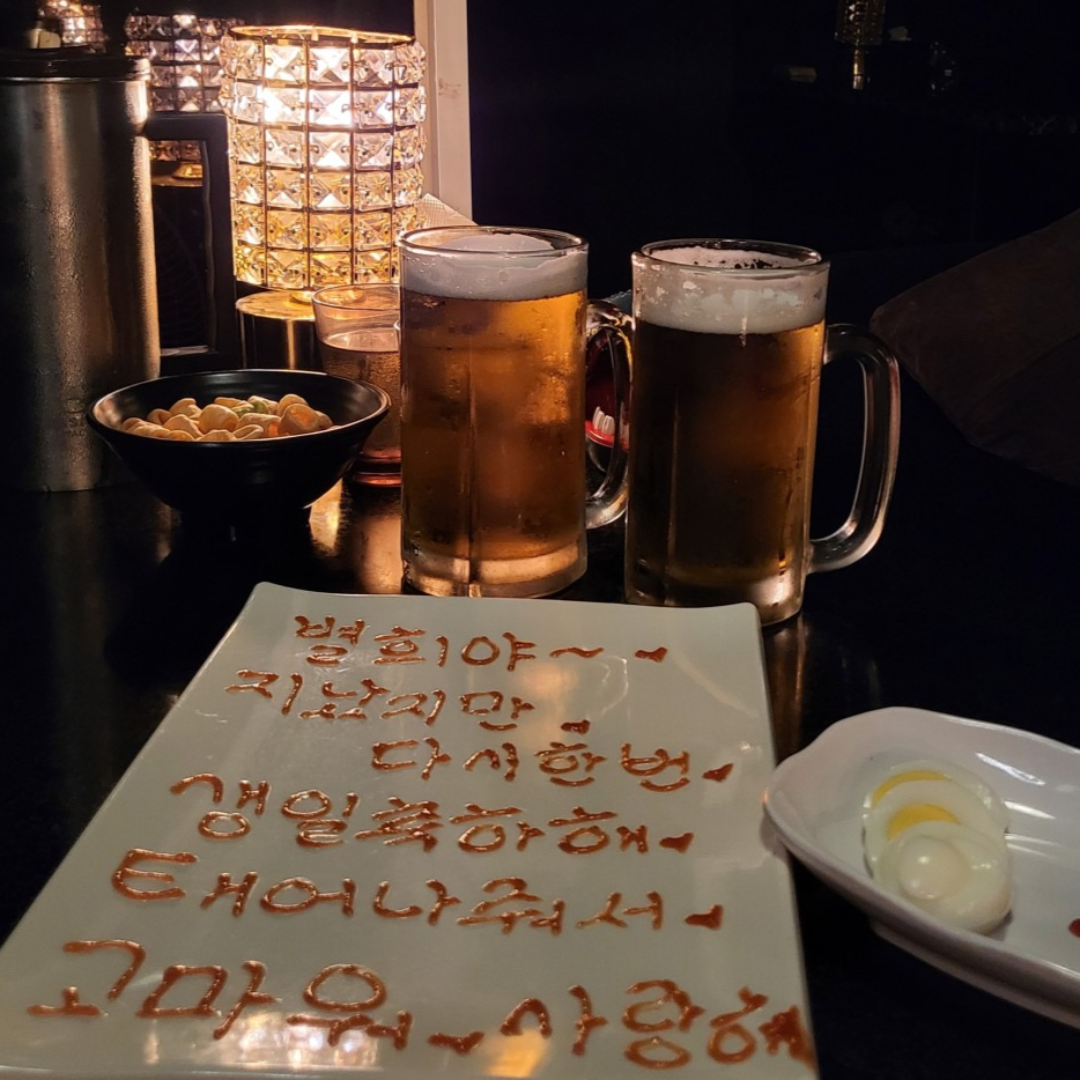 별희야~♥
지났지만♥
다시한번♥
생일축하해♥
태어나줘서♥
고마워~사랑해